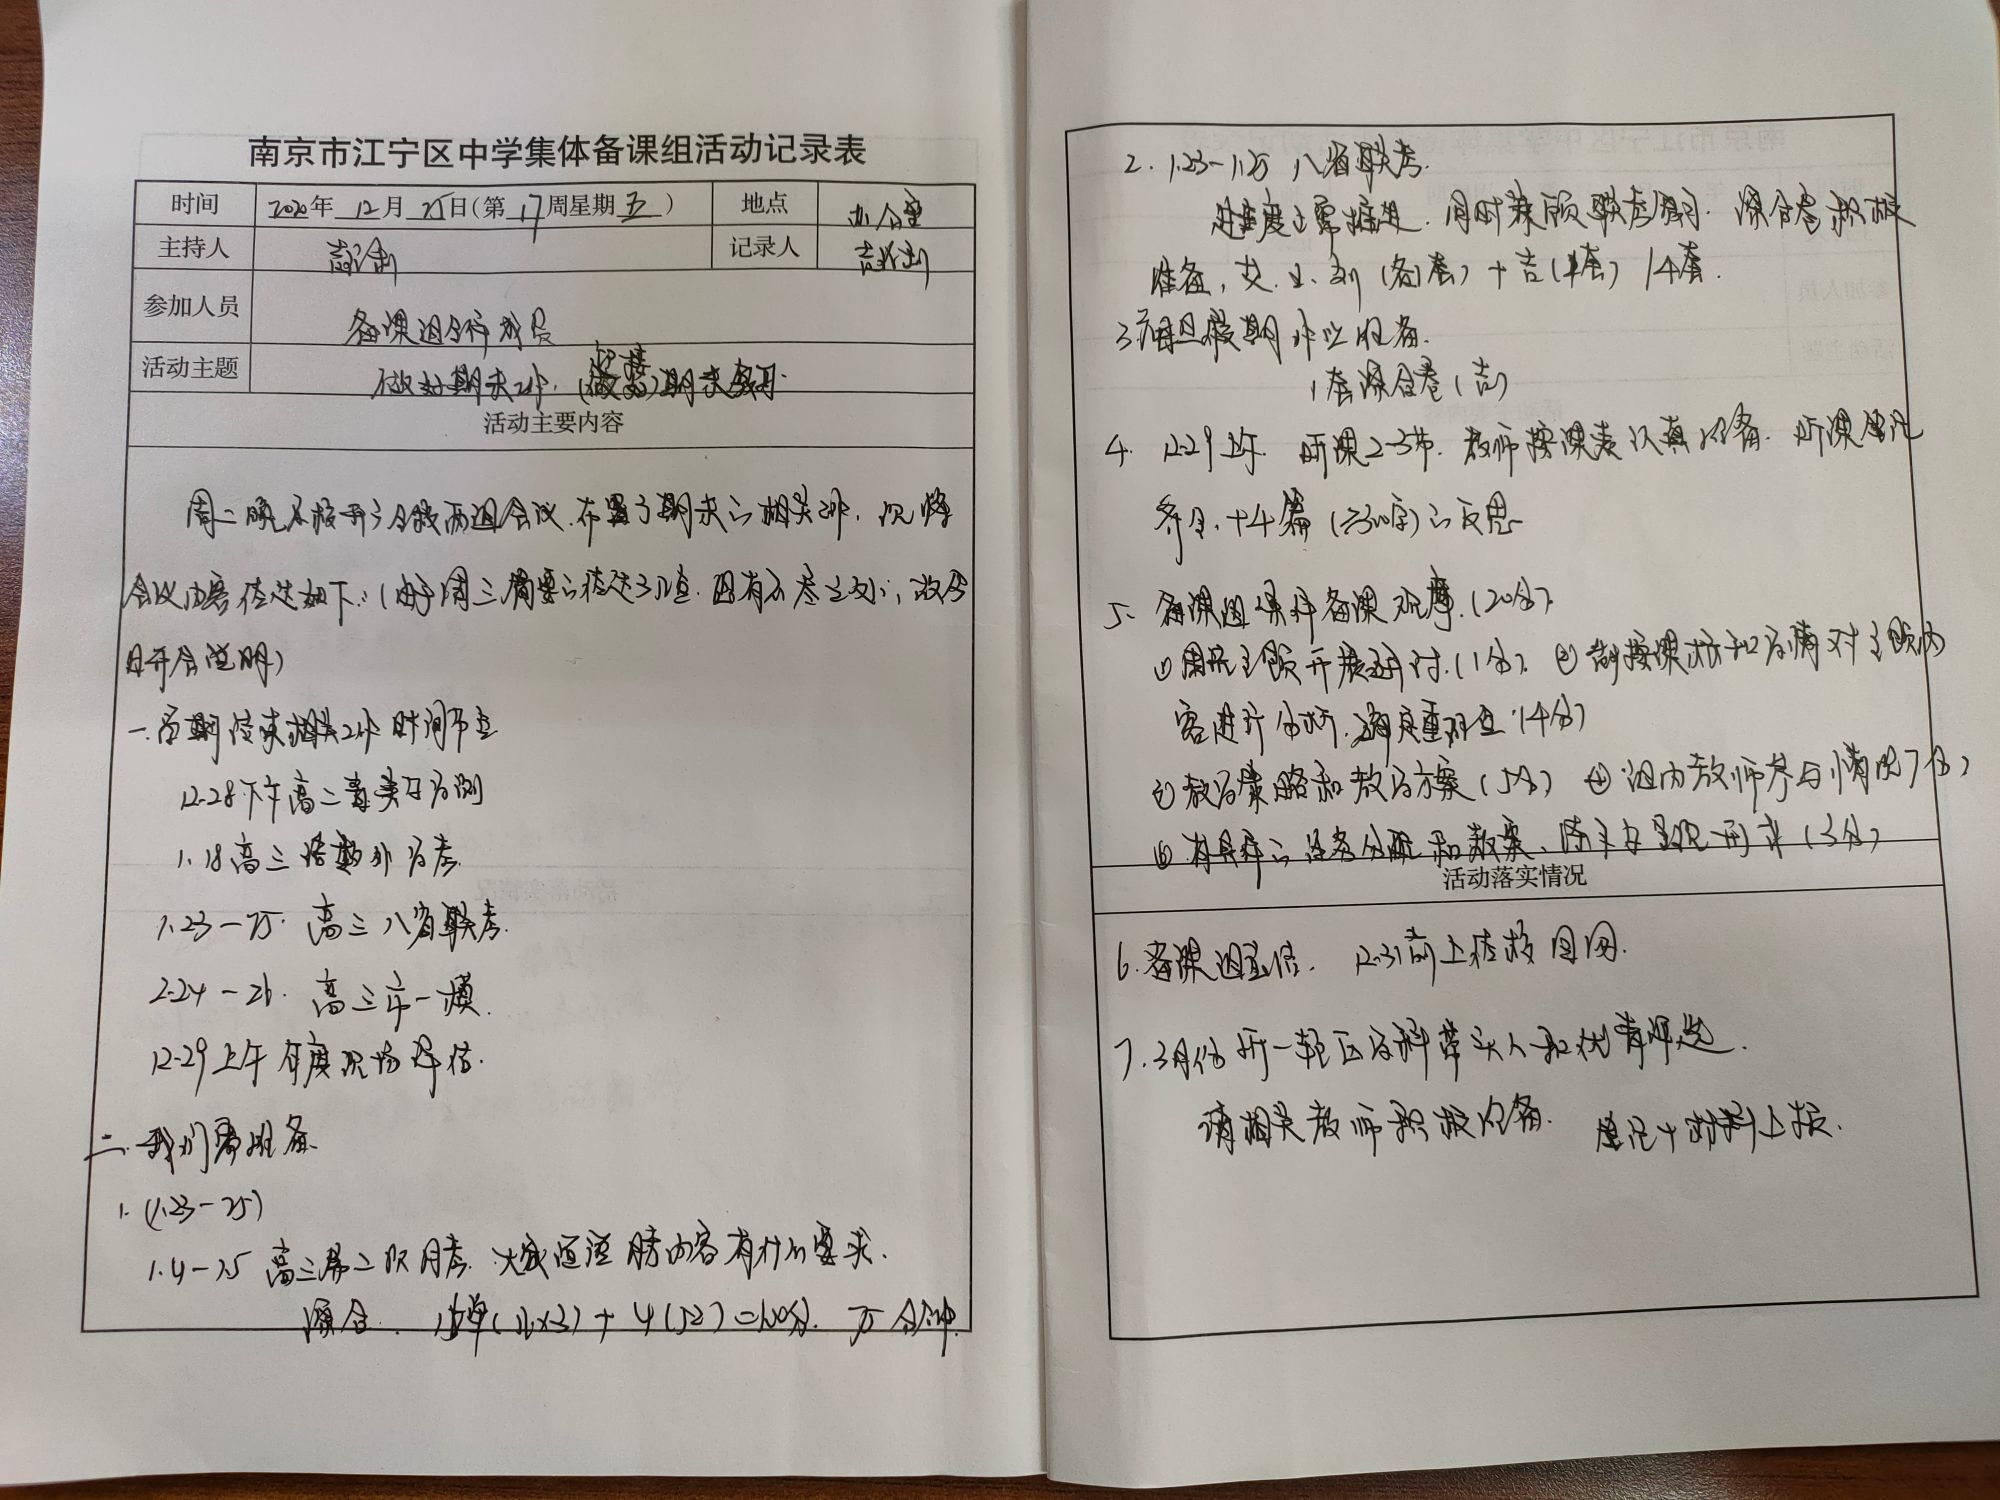 南京市江宁区中学集体备课组活动记录表
时间 2020年 12月 25日(第 17周星期 五 ) 地点 办公室
主持人 记录人
参加人员 备课组全体成员
活动主题 做好期末工作, 迎接期末复习
活动主要内容
周二晚 学校开了 两组会议, 布置了期末的相关工作, 现将
会议内容传达如下:(由于周三简要的传达了几点, 因有不尽之处, 故今
日开会说明)
一. 学期结束相关工作时间节点
12.28下午高二 学测
1.18高三 考
1.23-25. 高三八省联考.
2.24-26. 高三市一模.
12.29上午 年度现场评估.
二. 我们需准备
1. (1.23-25)
1.4-1.5 高三第二次月考. 内容有什么要求.
+ 4(52)=100分. 75分钟.
2. 1.23-1.25 八省联考.
同时兼顾联考复习. 综合卷积极
准备,
3. 假期作业准备.
1套综合卷(吉)
4. 12.29上午. 听课2-3节. 教师按课表认真准备. 听课笔记
齐全, +4篇(≥300字)的反思
5. 备课组集体备课观摩.(20分).
① 围绕主题开展研讨.(1分). ② 按课标和学情对主题内
容进行分析, 确定重难点.(4分)
③ 教学策略和教学方案(5分) ④ 组内教师参与情况7分)
⑤ 有具体的任务分配和教案、 呈现形式(3分)
活动落实情况
6. 备课组 12.31前上传校园网.
7. 3月份新一轮区学科带头人和优青评选.
请相关教师积极准备. 笔记+材料上报.